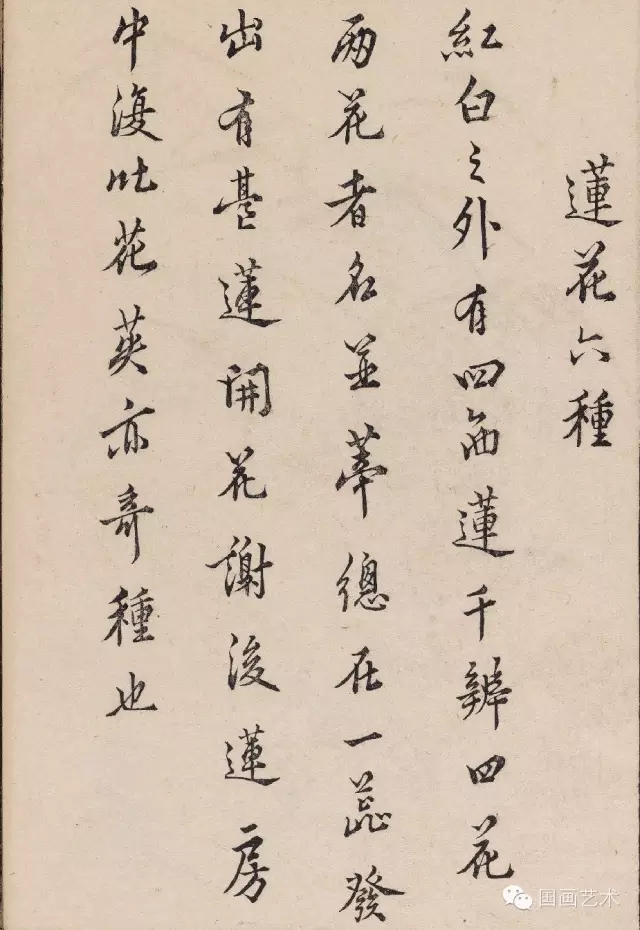 蓮花六種
紅白之外有四面蓮千瓣四花
兩花者名並蒂總在一蕊發
出有臺蓮開花謝後蓮房
中復吐花英亦奇種也
国画艺术